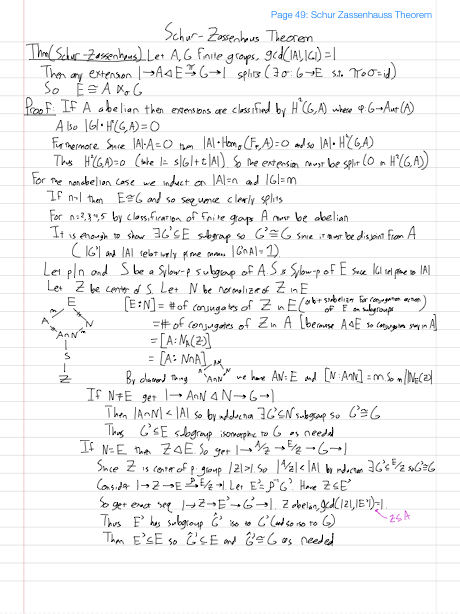 Page 49: Schur Zassenhauss Theorem
Schur-Zassenhaus Theorem
Thm (Schur-Zassenhaus) Let A, G finite groups, gcd(|A|,|G|)=1
Then any extension 1→A⊲E→G→1 splits (∃σ:G→E s.t. π∘σ=id)
So E≅A⋊G
Proof: If A abelian then extensions are classified by H²(G,A) where φ:G→Aut(A)
Also |G|·H²(G,A)=0
Furthermore Since |A|·A=0 then |A|·Hom(F,A)=0 and so |A|·H²(G,A)
Thus H²(G,A)=0 (take 1=s|G|+t|A|) So the extension must be split (0 in H²(G,A))
For the nonabelian case we induct on |A|=n and |G|=m
If n=1 then E≅G and so sequence clearly splits
For n=2,3,4,5 by classification of finite groups A must be abelian
It is enough to show ∃G'≤E subgroup so G'≅G since it must be disjoint from A
(|G'| and |A| relatively prime means |G∩A|=1)
Let p|n and S be a Sylow-p subgroup of A. S is Sylow-p of E since |G| rel prime to |A|
Let Z be center of S. Let N be normalizer of Z in E
[E:N] = # of conjugates of Z in E (orbit stabilizer for conjugation action of E on subgroups)
= # of conjugates of Z in A [because A⊲E so conjugates stay in A]
= [A:N_A(Z)]
= [A:N∩A]
E
m
A N
A∩N m
S
Z
By diamond thing we have AN=E and [N:A∩N]=m So m||N_E(Z)|
If N≠E get 1→A∩N⊲N→G→1
Then |A∩N|<|A| so by induction ∃G'≤N subgroup so G'≅G
Thus G'≤E subgroup isomorphic to G as needed
If N=E then Z⊲E. So get 1→A/Z→E/Z→G→1
Since Z is center of p-group |Z|>1. So |A/Z|<|A| by induction ∃G'≤E/Z so G'≅G
Consider 1→Z→E→E/Z→1. Let E'=p⁻¹G'. Have Z≤E'
So get exact seq 1→Z→E'→G'→1. Z abelian, gcd(|Z|,|E'|)=1.
Z≤A
Thus E' has subgroup Ĝ' iso to G' (and so iso to G)
Then E'≤E so Ĝ'≤E and Ĝ'≅G as needed